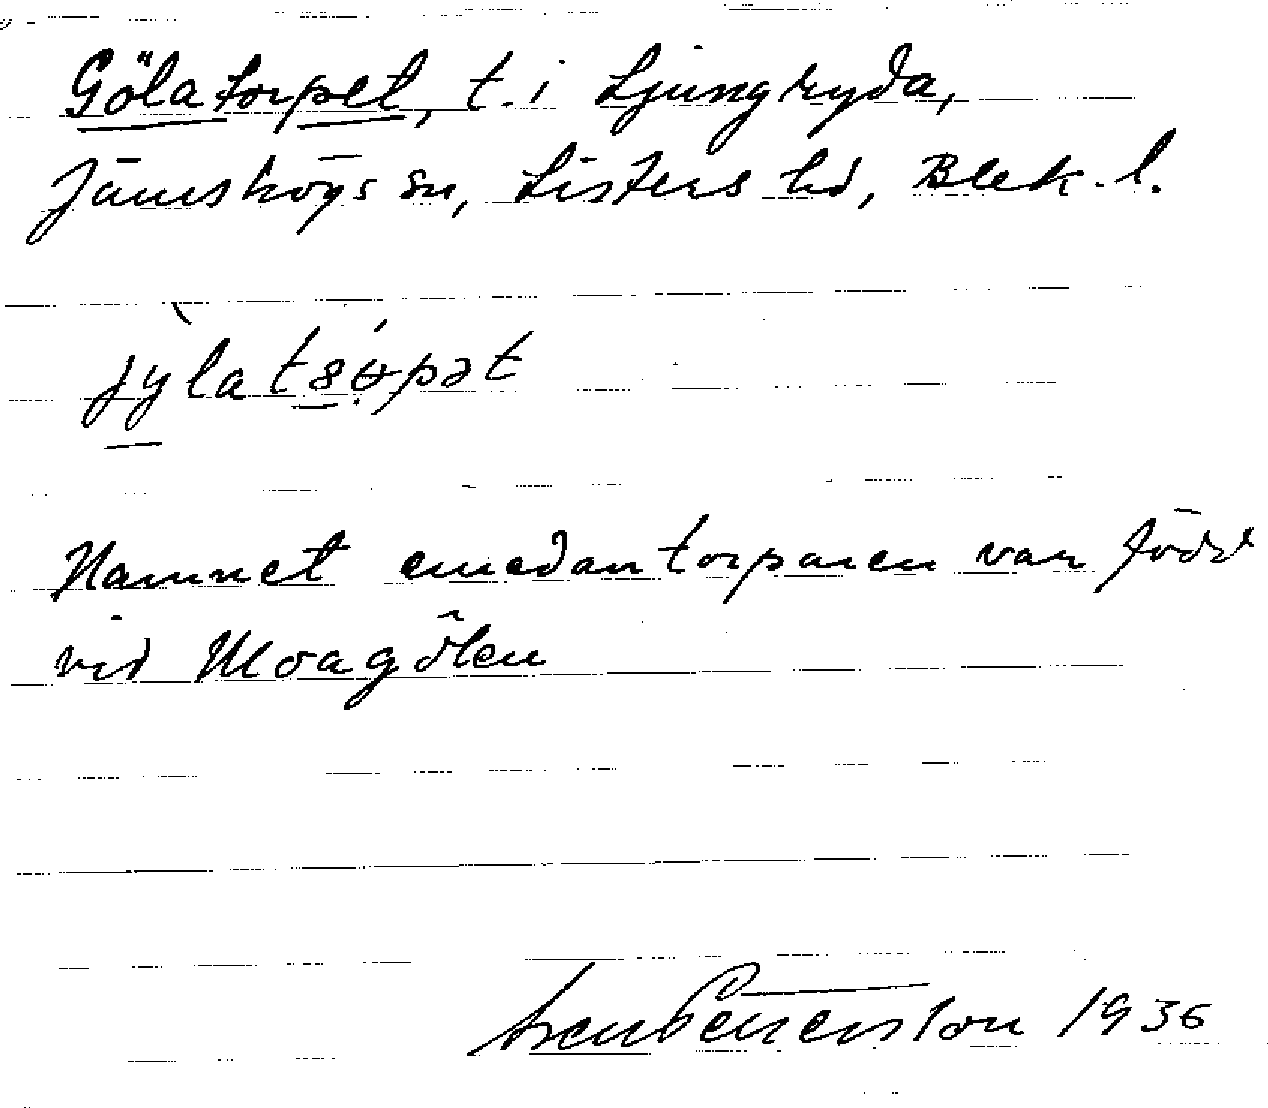 Gölatorpet, t. i Ljungryda,
Jämshögs sn, Listers hd, Blek. l.
Namnet emedan torparen var född
vid Moagölen
1936